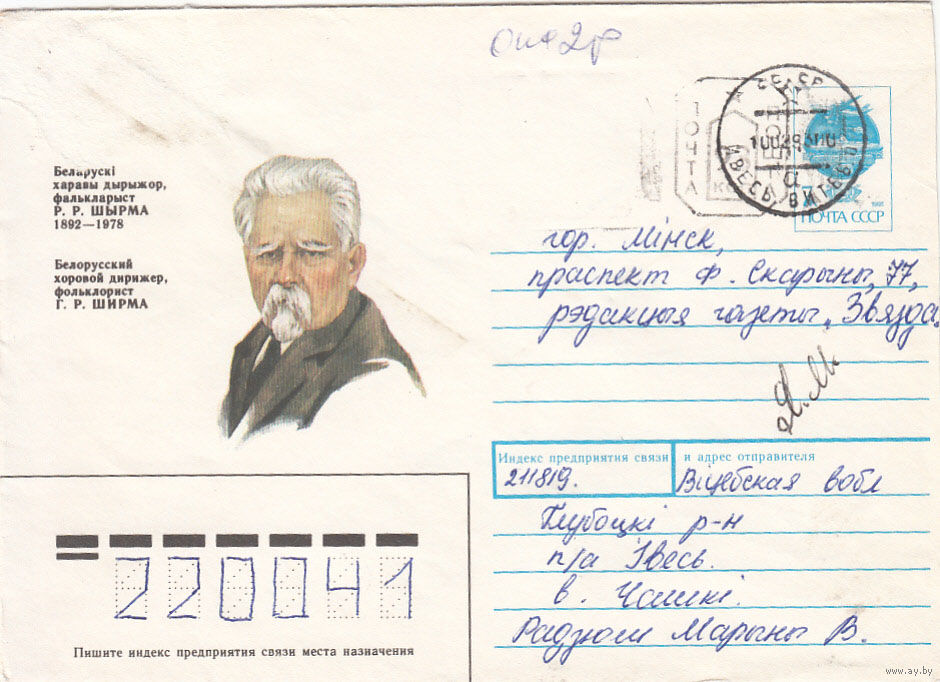 Беларускі
харавы дырыжор,
фалькларыст
Р. Р. ШЫРМА
1892—1978
Белорусский
хоровой дирижер,
фольклорист
Г. Р. ШИРМА
ПОЧТА
СССР
ИВЕСЬ ВИТЕБ
7
1991
ПОЧТА СССР
гор. Мінск,
праспект Ф. Скарыны, 77,
рэдакцыя газеты „Звязда"
Индекс предприятия связи и адрес отправителя
211819. Віцебская вобл
Глубоцкі р-н
п/а Івесь.
в. Чашкі.
Радзюш Марыны В.
220041
Пишите индекс предприятия связи места назначения
www.ay.by